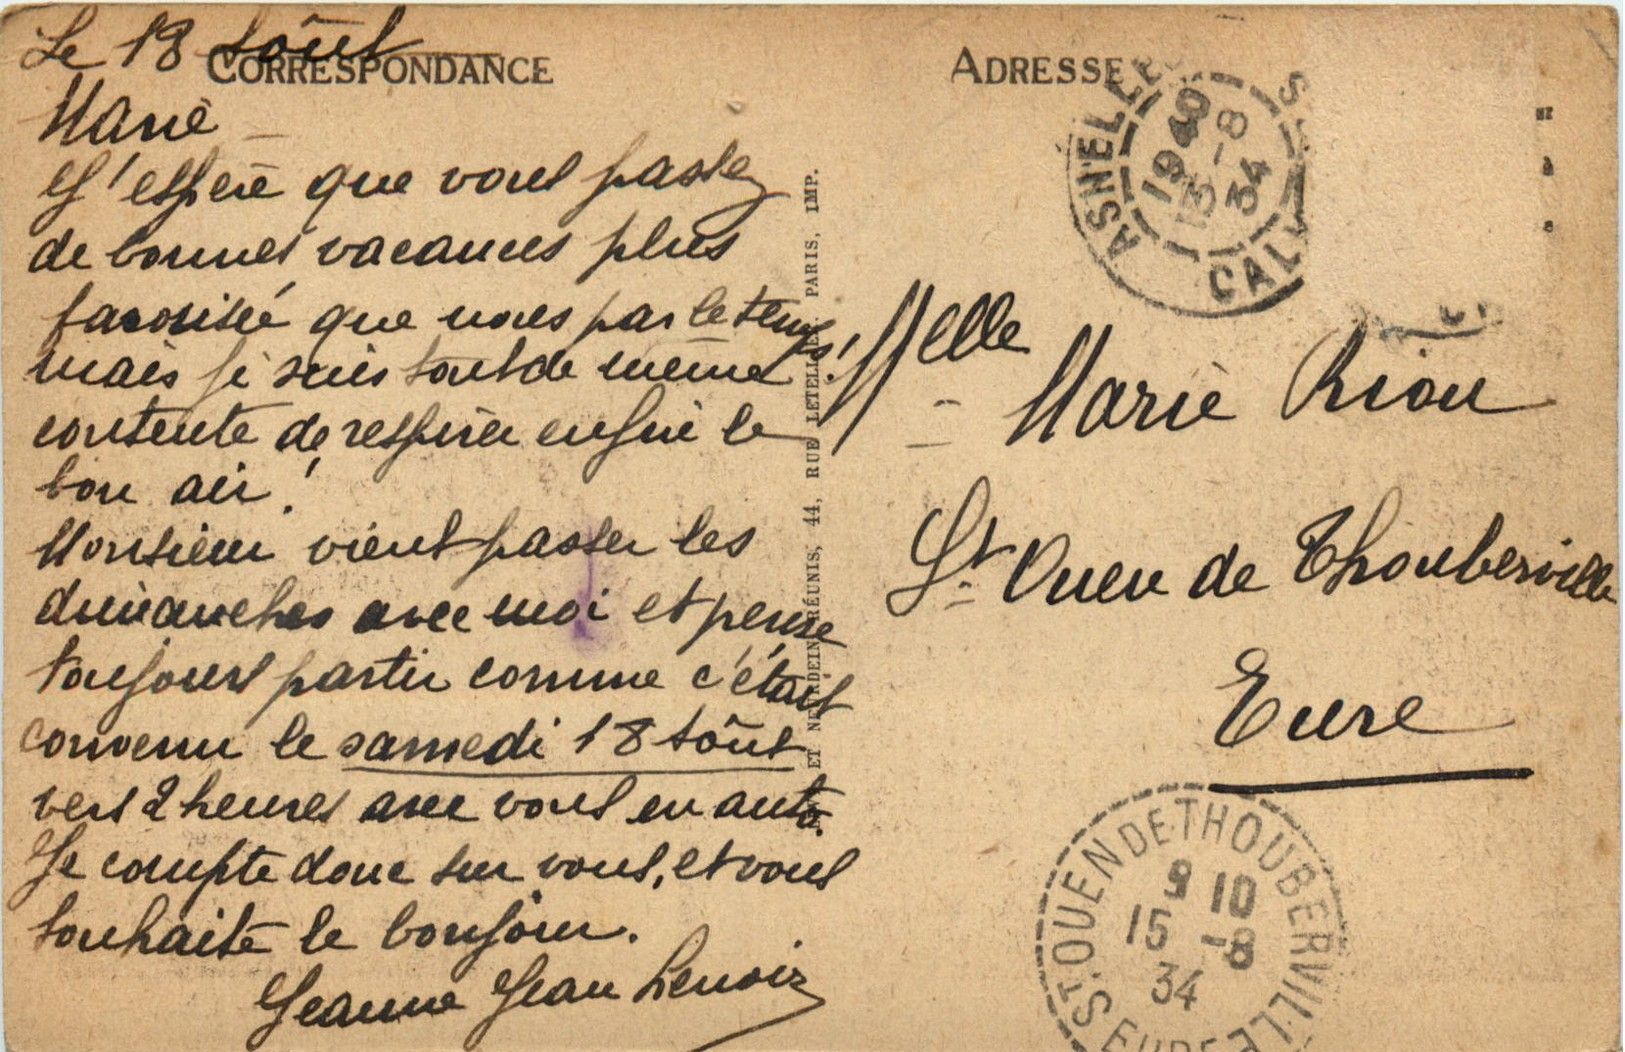 Le 13 Août
CORRESPONDANCE
Marie
J'espère que vous passez
de bonnes vacances plus
favorisée que nous par le temps!
mais je suis tout de même
contente de respirer enfin le
bon air!
Monsieur vient passer les
dimanches avec moi et pense
toujours partir comme c'était
convenu le samedi 18 Août
vers 2 heures avec vous en auto.
Je compte donc sur vous, et vous
souhaite le bonjour.
Jeanne Jean Lenoir
ET NEURDEIN RÉUNIS, 44, RUE LETELLIER, PARIS, IMP.
ADRESSE
ASNEL
1940
13 -8
34
CALV
Melle
Marie Riou
St Ouen de Thouberville
Eure
ST OUEN DE THOUBERVILLE
9 10
15 -8
34
EURE